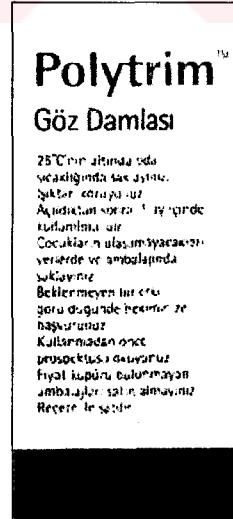 Polytrim™
Göz Damlası
25°C'nin altında oda
sıcaklığında saklayınız.
Işıktan koruyunuz
Açıldıktan sonra 1 ay içinde
kullanılmalıdır
Çocukların ulaşamayacakları
yerlerde ve ambalajında
saklayınız
Beklenmeyen bir etki
görüldüğünde hekiminize
başvurunuz
Kullanmadan önce
prospektüsü okuyunuz
Fiyat kupürü bulunmayan
ambalajları satın almayınız
Reçete ile satılır